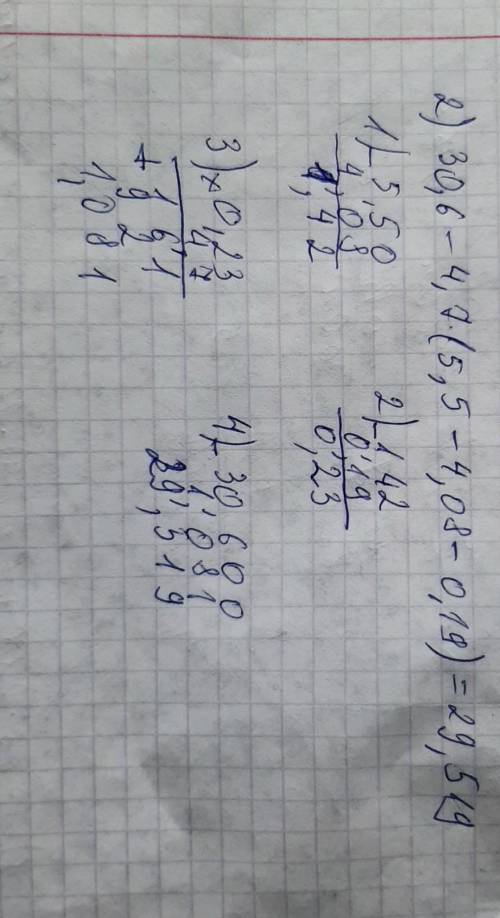 2) 30,6 - 4,7·(5,5 - 4,08 - 0,19) = 29,519
1) - 5,50
4,08
1,42
2) - 1,42
0,19
0,23
3) × 0,23
4,7
161
+ 92
1,081
4) - 30,600
1,081
29,519